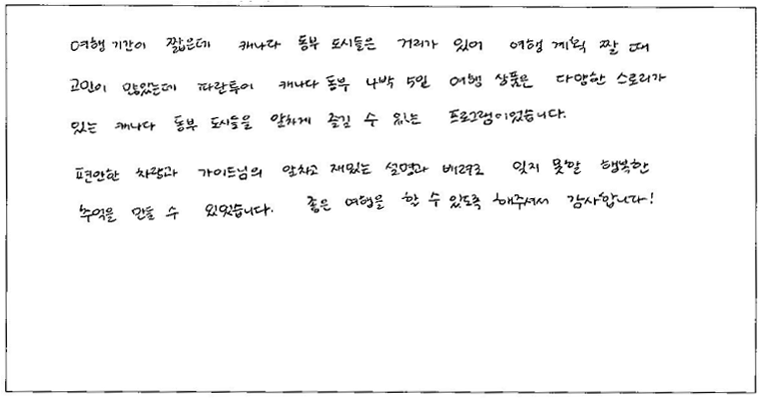 여행 기간이 짧은데 캐나다 동부 도시들은 거리가 있어 여행 계획 짤 때
고민이 많았는데 파란투어 캐나다 동부 4박 5일 여행 상품은 다양한 스토리가
있는 캐나다 동부 도시들을 알차게 즐길 수 있는 프로그램이었습니다.
편안한 차량과 가이드님의 알차고 재밌는 설명과 배려로 잊지 못할 행복한
추억을 만들 수 있었습니다. 좋은 여행을 할 수 있도록 해주셔서 감사합니다!